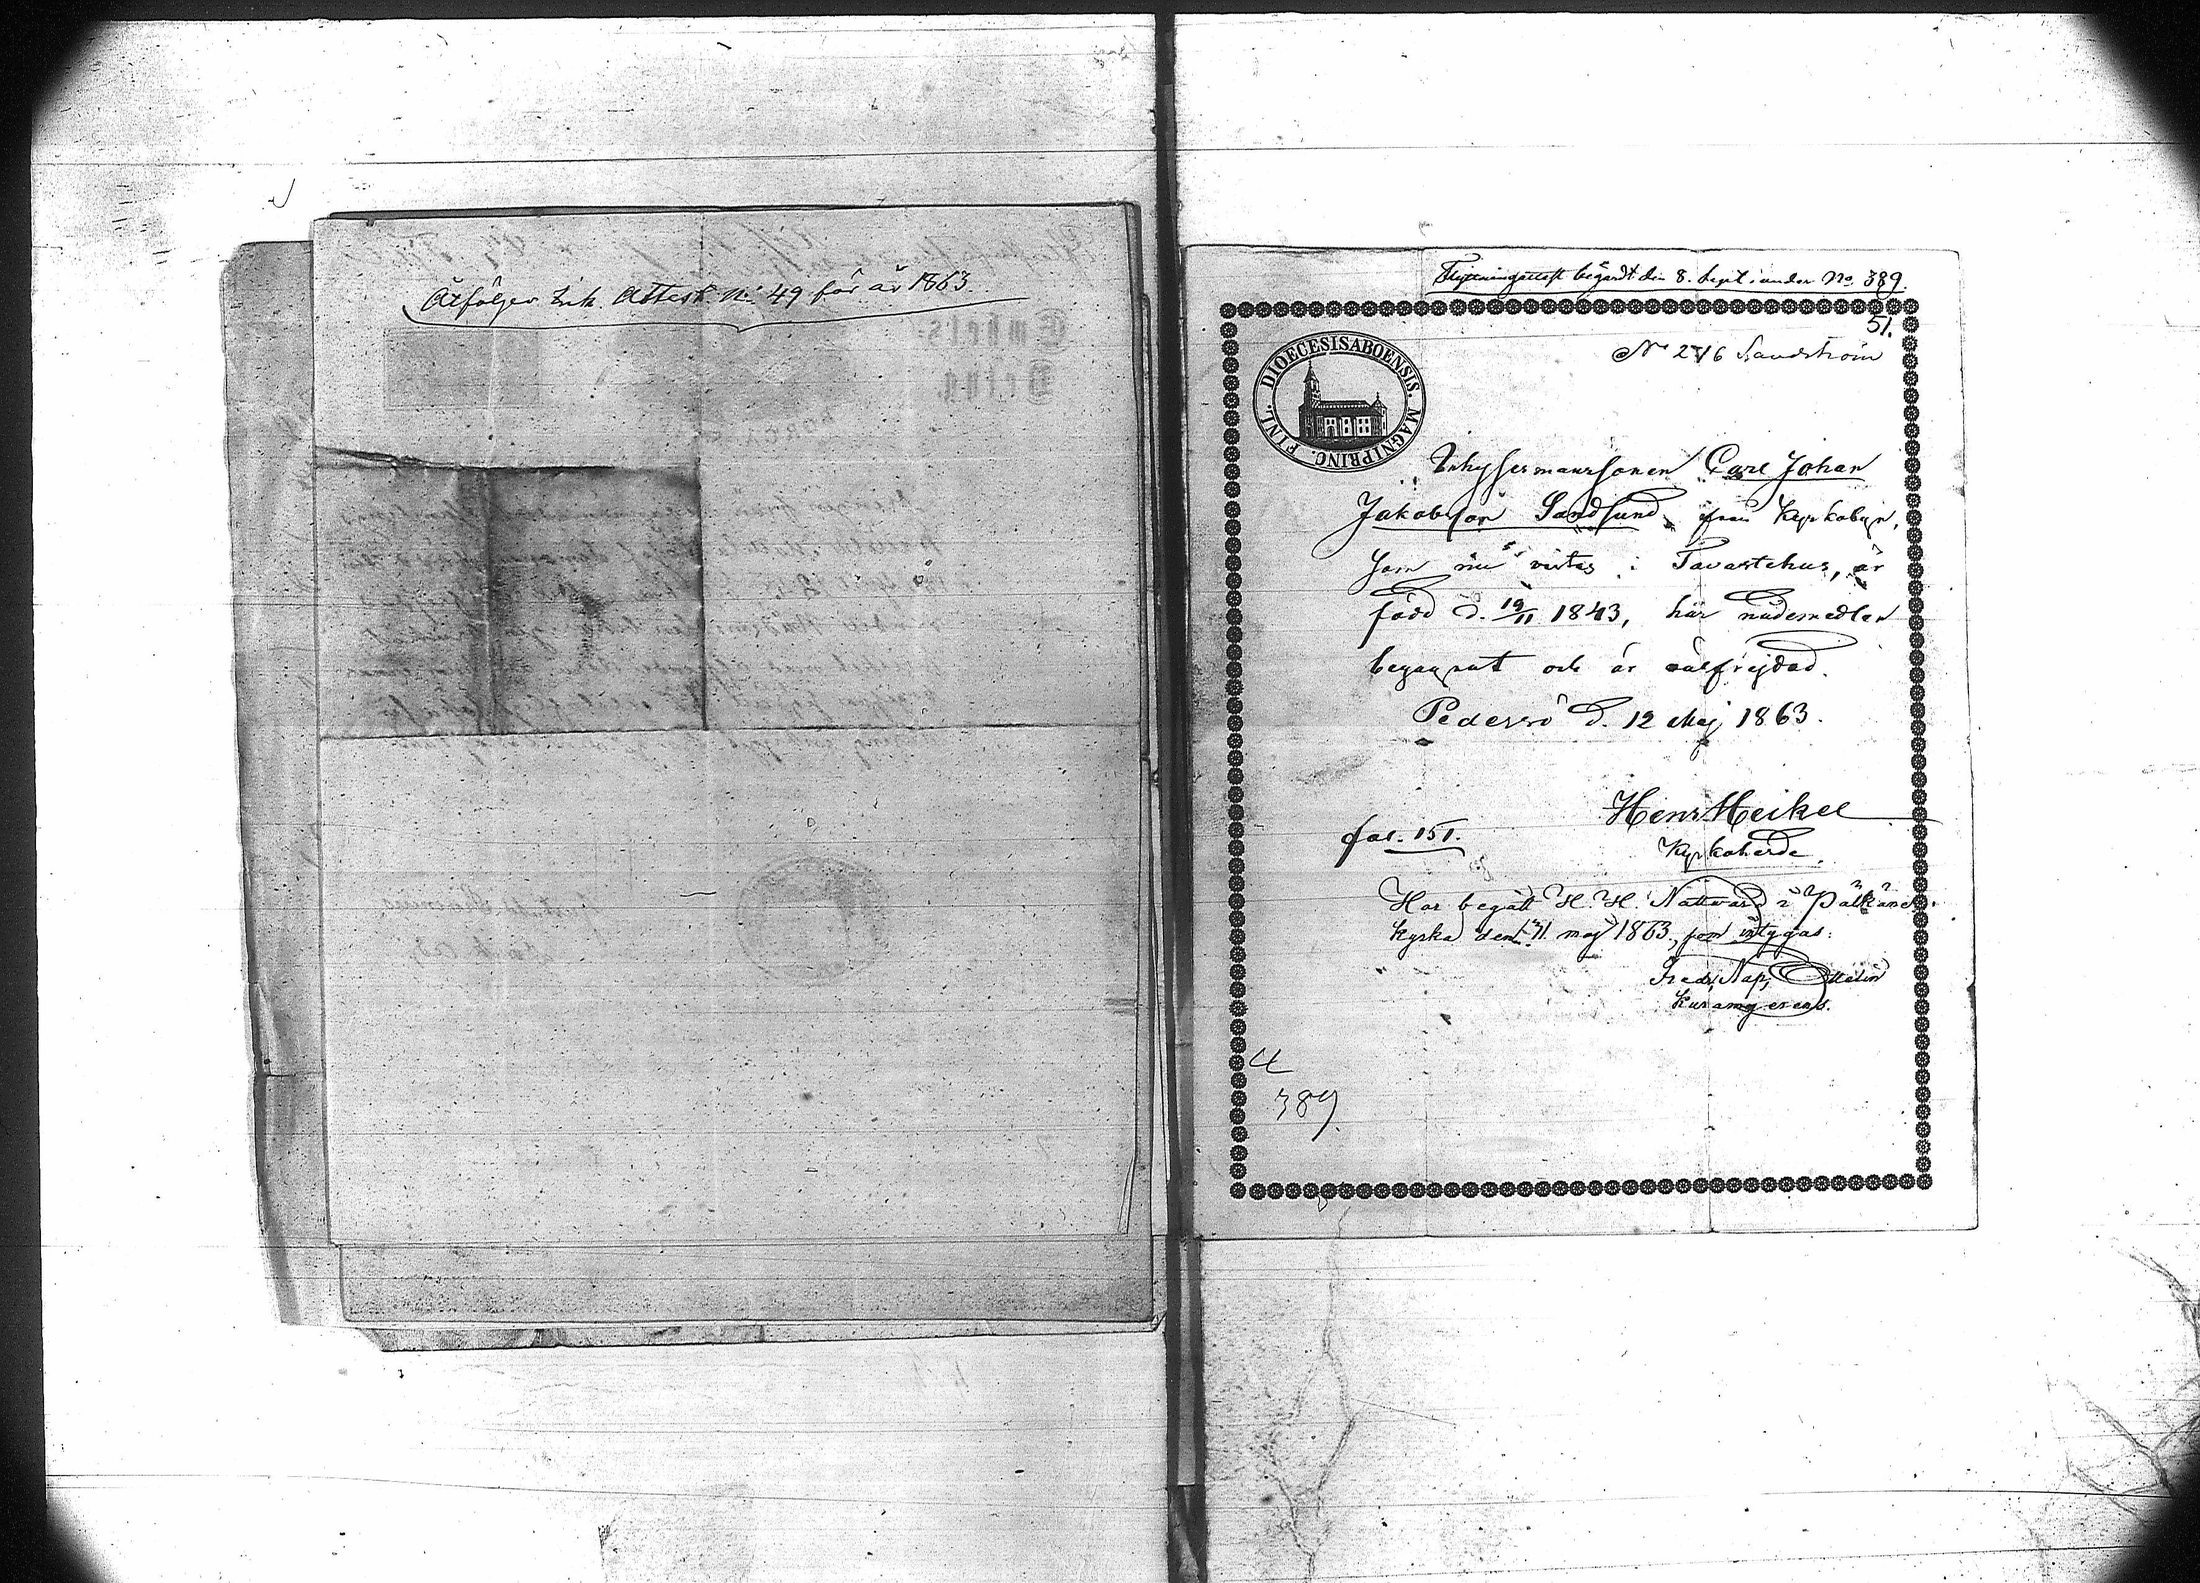 Åtföljer Ink. Attest. No 49 för år 1863.
Flyttningattest begärdt den 8. Sept. under No. 389.
51.
No 276 Sandström
DIOECESIS ABOENSIS. MAGNI PRINC. FINL.
Inhysesmanssonen Carl Johan
Jakobsson Sandsund, från Kyrkobyn,
som nu vistas i Tavastehus, är
född d. 19/11 1843, har nådemedlen
begagnat och är välfrejdad.
Pedersö d. 12 Maj 1863.
Henr Heikel
Kyrkoherde.
fol. 151.
Har begått H. H. Nattvard i Pälkäne
kyrka den 31 maj 1863, som intygas:
Fredr. Nap.
U
389.